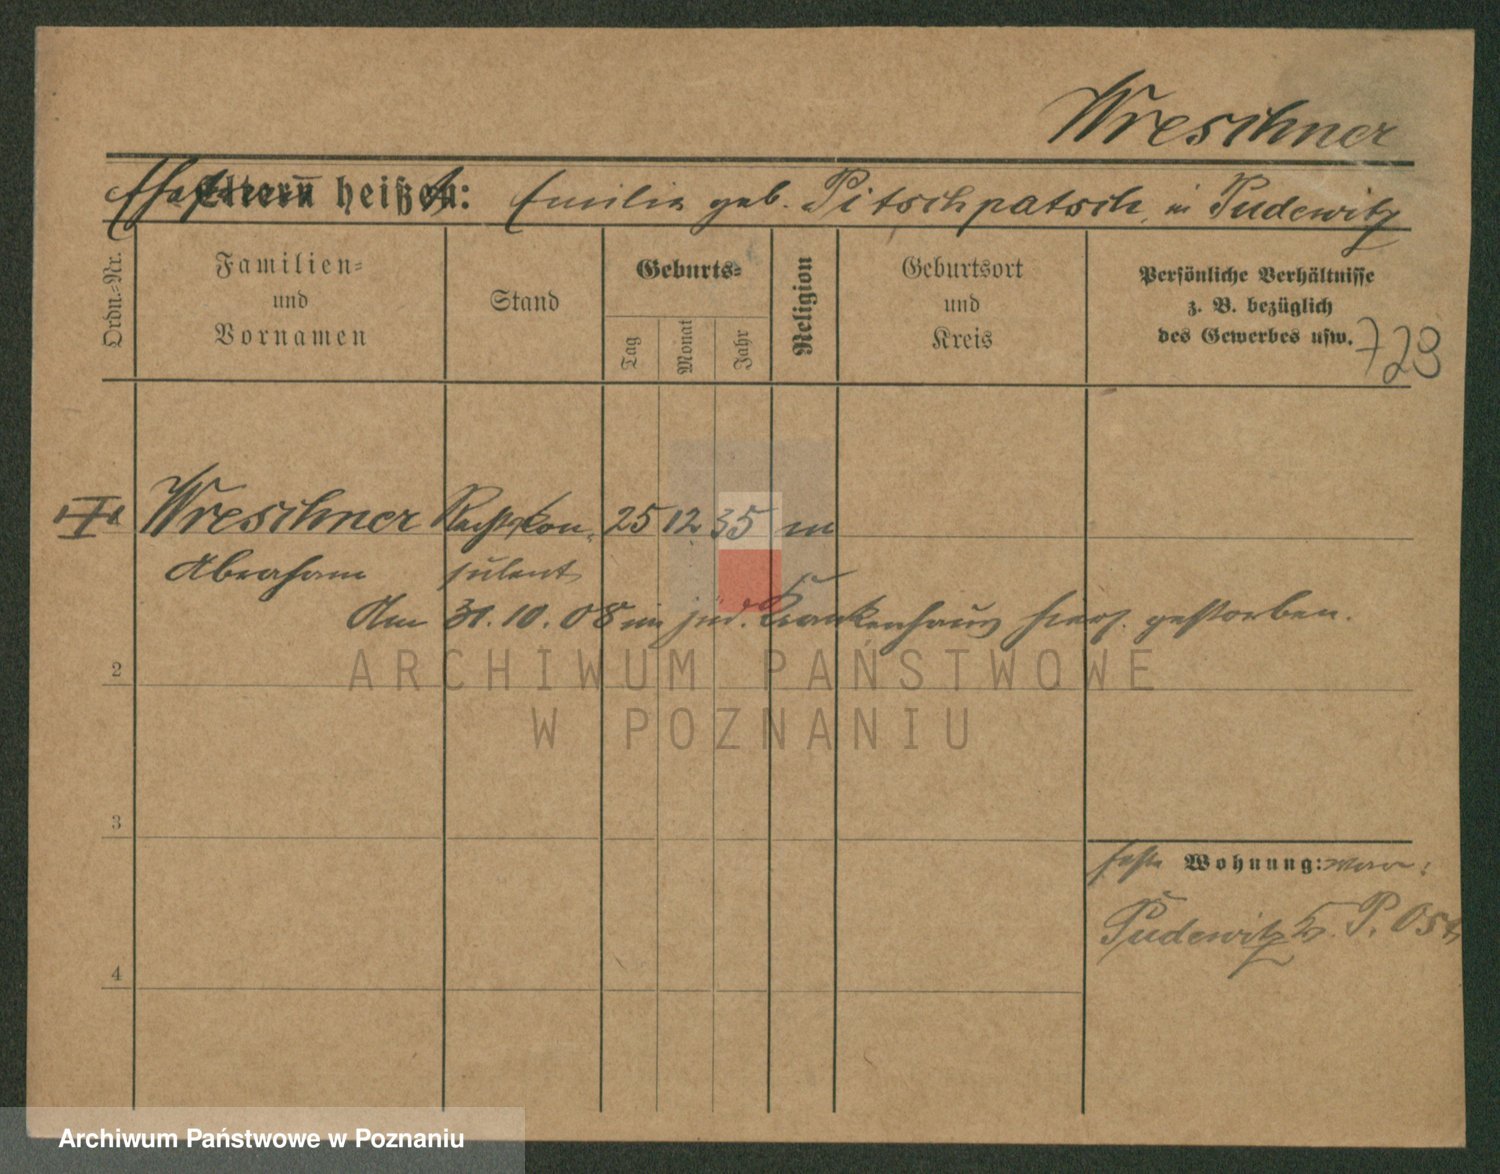 Wreschner
Ehefrau Eltern heißen: heißt Emilie geb. Pitschpatsch, in Pudewitz
Ordn.-Nr.
Familien-
und
Vornamen
Stand
Geburts-
Tag
Monat
Jahr
Religion
Geburtsort
und
Kreis
Persönliche Verhältnisse
z. B. bezüglich
des Gewerbes usw.
723
Wreschner Rechtskon- 25 12 35 m
Abraham sulent
Am 31.10.08 im jüd. Krankenhaus hiers. gestorben.
2
ARCHIWUM PAŃSTWOWE
W POZNANIU
3
Wohnung: war:
Pudewitz P. Ost
4
Archiwum Państwowe w Poznaniu